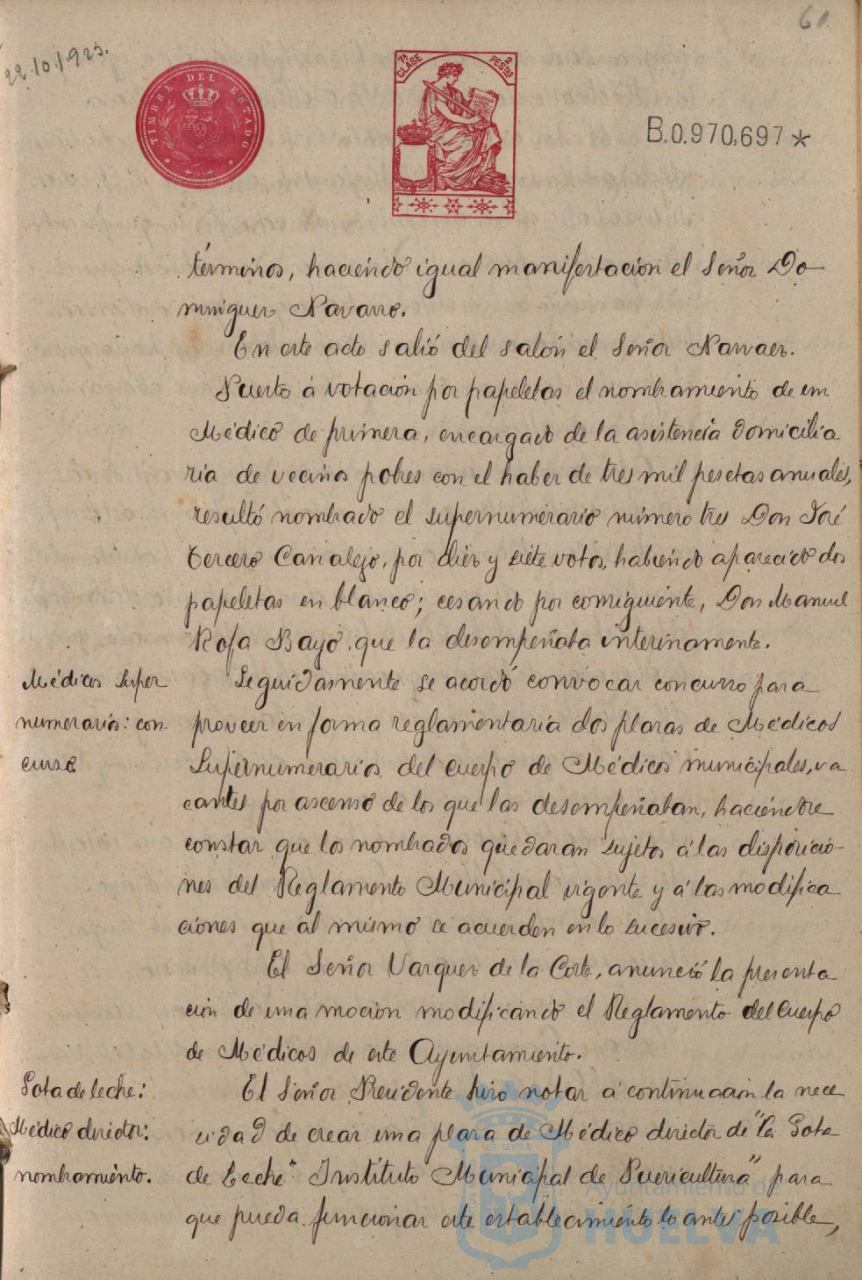 61
22.10.1923.
TIMBRE DEL ESTADO
7ª CLASE
2 PESTAS
B.0.970,697*
términos, haciendo igual manifestación el Señor Do-
minguez Navarro.
En este acto salió del salón el Señor Narvaez.
Puesto á votación por papeletas el nombramiento de un
Médico de primera, encargado de la asistencia domicilia
ria de vecinos pobres con el haber de tres mil pesetas anuales,
resultó nombrado el supernumerario número tres Don José
Tercero Canalejo, por diez y siete votos, habiendo aparecido dos
papeletas en blanco; cesando por consiguiente, Don Manuel
Rofa Bayo, que la desempeñaba interinamente.
Médicos Super
numerarios: con-
curso
Seguidamente se acordó convocar concurso para
proveer en forma reglamentaria dos plazas de Médicos
Supernumerarios del cuerpo de Médicos municipales, va
cantes por ascenso de los que las desempeñaban, haciéndose
constar que los nombrados quedaran sujetos á las disposicio-
nes del Reglamento Municipal vigente y á las modifica
ciones que al mismo se acuerden en lo sucesivo.
El Señor Vazquez de la Corte, anunció la presenta
ción de una moción modificando el Reglamento del Cuerpo
de Médicos de este Ayuntamiento.
Gota de leche:
Médico director:
nombramiento.
El Señor Presidente hizo notar á continuación la nece
cidad de crear una plaza de Médico director de "la Gota
de Leche" Instituto Municipal de Puericultura" para
que pueda funcionar este establecimiento lo antes posible,
Ayuntamiento de
HUELVA